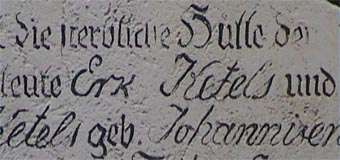 die sterbliche Hülle der
leute Erk Ketels und
Ketels geb. Johannwen